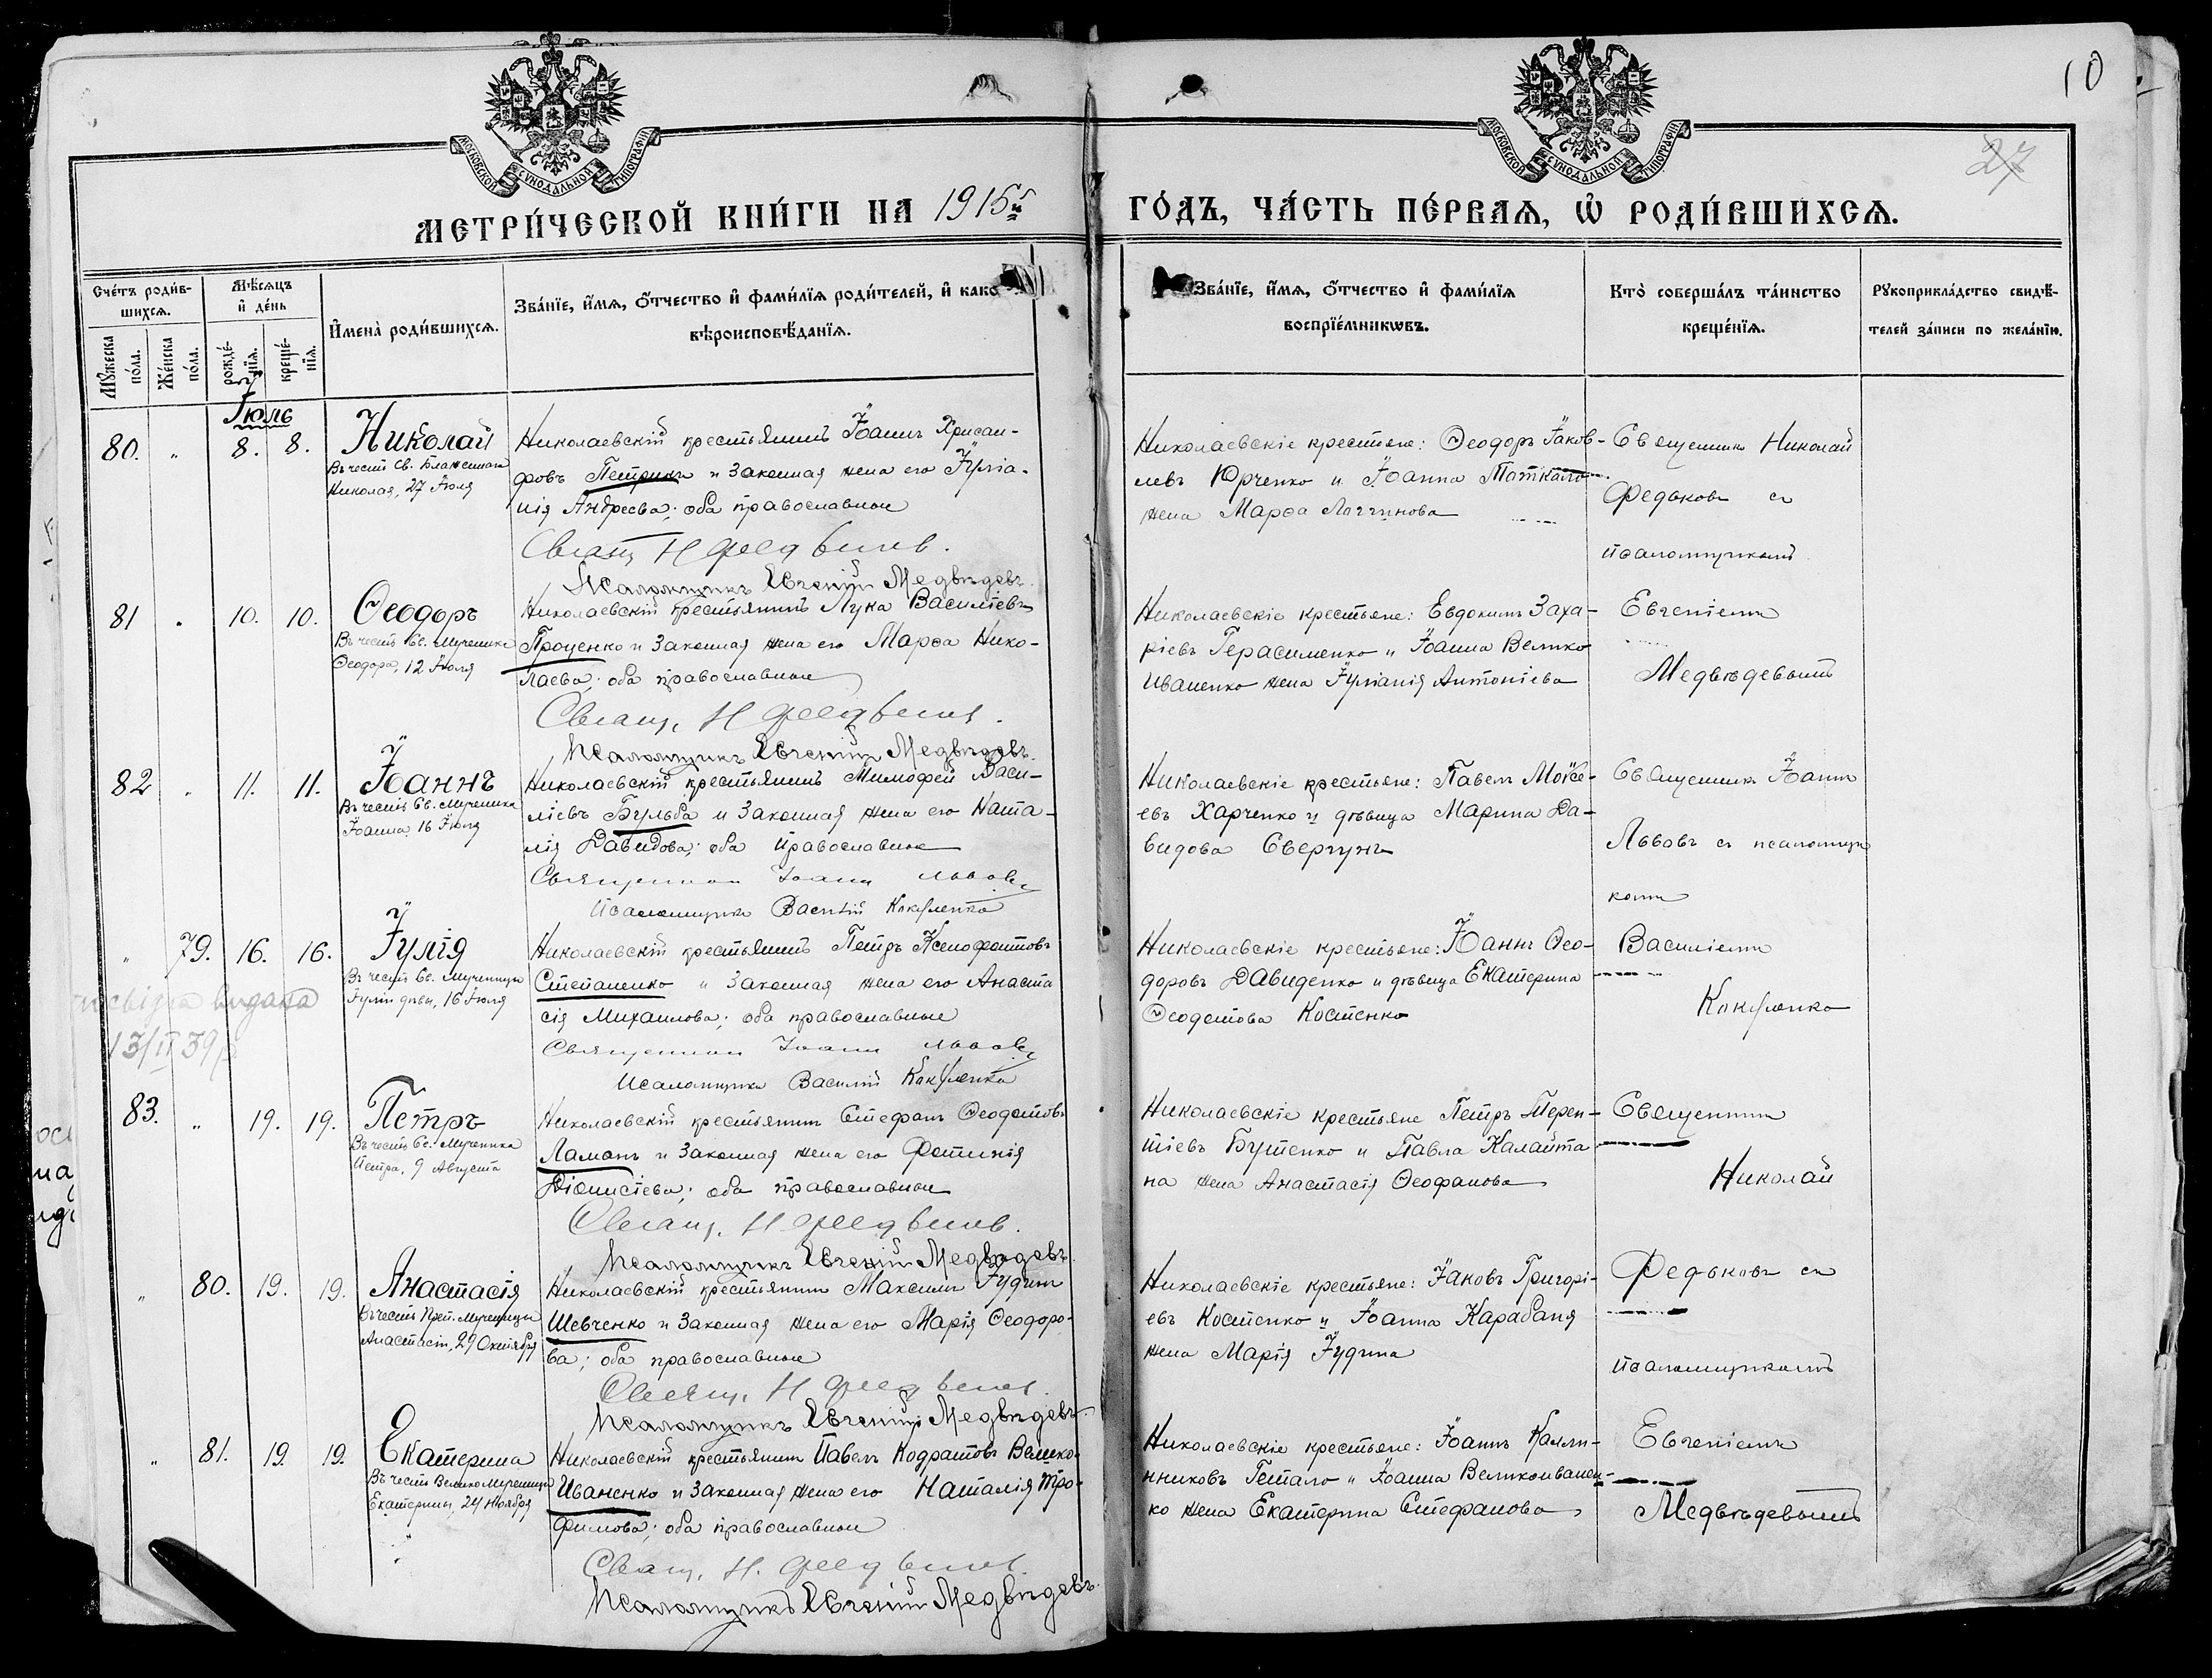 10
27
МОСКОВСКОЙ СѴНОДАЛЬНОЙ ТИПОГРАФІИ
МОСКОВСКОЙ СѴНОДАЛЬНОЙ ТИПОГРАФІИ
МЕТРИ́ЧЕСКОЙ КНИ́ГИ НА 1915 ГО́ДЪ, ЧА́СТЬ ПЕ́РВАЯ, Ѿ РОДИ́ВШИХСЯ.
Сче́тъ роди́в-
шихся.
Мѣ́сяцъ
и де́нь
Имена̀ роди́вшихся.
Зва́нїе, и́мя, о́тчество и фами́лїя роди́телей, и како
вѣроисповѣ́данїя.
Зва́нїе, и́мя, о́тчество и фами́лїя
воспрїе́мникωвъ.
Кто̀ соверша́лъ та́инство
креще́нїя.
Рꙋкоприкла́дство свидѣ́-
телей за́писи по жела́нїю.
Мꙋ́жеска
по́ла.
Же́нска
по́ла.
рожде́-
нїя.
креще́-
нїя.
Іюль
80. " 8. 8. Николай
Въ честь Св. Блаженнаго
Николая, 27 Іюля
Николаевскій крестьянинъ Іоаннъ Хрисан-
фовъ Петрикъ и законная жена его Іуліа-
нія Андреева; оба православные
Свящ. Н Федьковъ.
Псаломщикъ Евгеній Медвѣдевъ.
Николаевскіе крестьяне: Ѳеодоръ Іаков-
левъ Юрченко и Іоанна Маткало
жена Марѳа Логгинова
Священникъ Николай
Федьковъ съ
псаломщикомъ
81 " 10. 10. Ѳеодоръ
Въ честь Св. Мученика
Ѳеодора, 12 Іюля
Николаевскій крестьянинъ Лука Василіевъ
Проценко и законная жена его Марѳа Нико-
лаева; оба православные
Свящ. Н Федьковъ.
Псаломщикъ Евгеній Медвѣдевъ.
Николаевскіе крестьяне: Евдокимъ Заха-
ріевъ Герасименко и Іоанна Велико
Иваненко жена Іуліанія Антоніева
Евгеніемъ
Медвѣдевымъ
82 " 11. 11. Іоаннъ
Въ честь Св. Мученика
Іоанна, 16 Іюля
Николаевскій крестьянинъ Тимофей Васи-
ліевъ Бульба и законная жена его Ната-
лія Давидова; оба православные
Священникъ Іоаннъ Львовъ
Псаломщикъ Василій
Николаевскіе крестьяне: Павелъ Моѵсе-
евъ Харченко и дѣвица Марина Да-
видова Свергунъ
Священникъ Іоаннъ
Львовъ съ псаломщи
комъ
" 79. 16. 16. Іулія
Въ честь Св. Мученицы
Іуліи дѣвы, 16 Іюля
13/II 39
Николаевскій крестьянинъ Петръ Ксенофонтовъ
Степаненко и законная жена его Анаста
сія Михаилова; оба православные
Священникъ Іоаннъ Львовъ
Псаломщикъ Василій
Николаевскіе крестьяне: Іоаннъ Ѳео-
доровъ Давиденко и дѣвица Екатерина
Ѳеодотова Костенко
Василіемъ
83. " 19. 19. Петръ
Въ честь Св. Мученика
Петра, 9 Августа
Николаевскій крестьянинъ Стефанъ Ѳеодотовъ
Ламанъ и законная жена его Фотинія
Діонисіева; оба православные
Свящ. Н Федьковъ.
Псаломщикъ Евгеній Медвѣдевъ.
Николаевскіе крестьяне Петръ Терен-
тіевъ Бутенко и Павла Калайта
на жена Анастасія Ѳеофанова
Священникъ
Николай
" 80. 19. 19. Анастасія
Въ честь Преп. Мученицы
Анастасіи, 29 Октября
Николаевскій крестьянинъ Максимъ Іудинъ
Шевченко и законная жена его Марія Ѳеодоро-
ва; оба православные
Свящ. Н Федьковъ.
Псаломщикъ Евгеній Медвѣдевъ.
Николаевскіе крестьяне: Іаковъ Григорі-
евъ Костенко и Іоанна Карабаня
жена Марія Іудина
Федьковъ съ
псаломщикомъ
" 81. 19. 19. Екатерина
Въ честь Великомученицы
Екатерины, 24 Ноября
Николаевскій крестьянинъ Павелъ Кодратовъ Велико-
Иваненко и законная жена его Наталія Тро-
фимова; оба православные
Свящ. Н. Федьковъ.
Псаломщикъ Евгеній Медвѣдевъ.
Николаевскіе крестьяне: Іоаннъ Калли-
никовъ Гетало и Іоанна Великоиванен-
ко жена Екатерина Стефанова
Евгеніемъ
Медвѣдевымъ